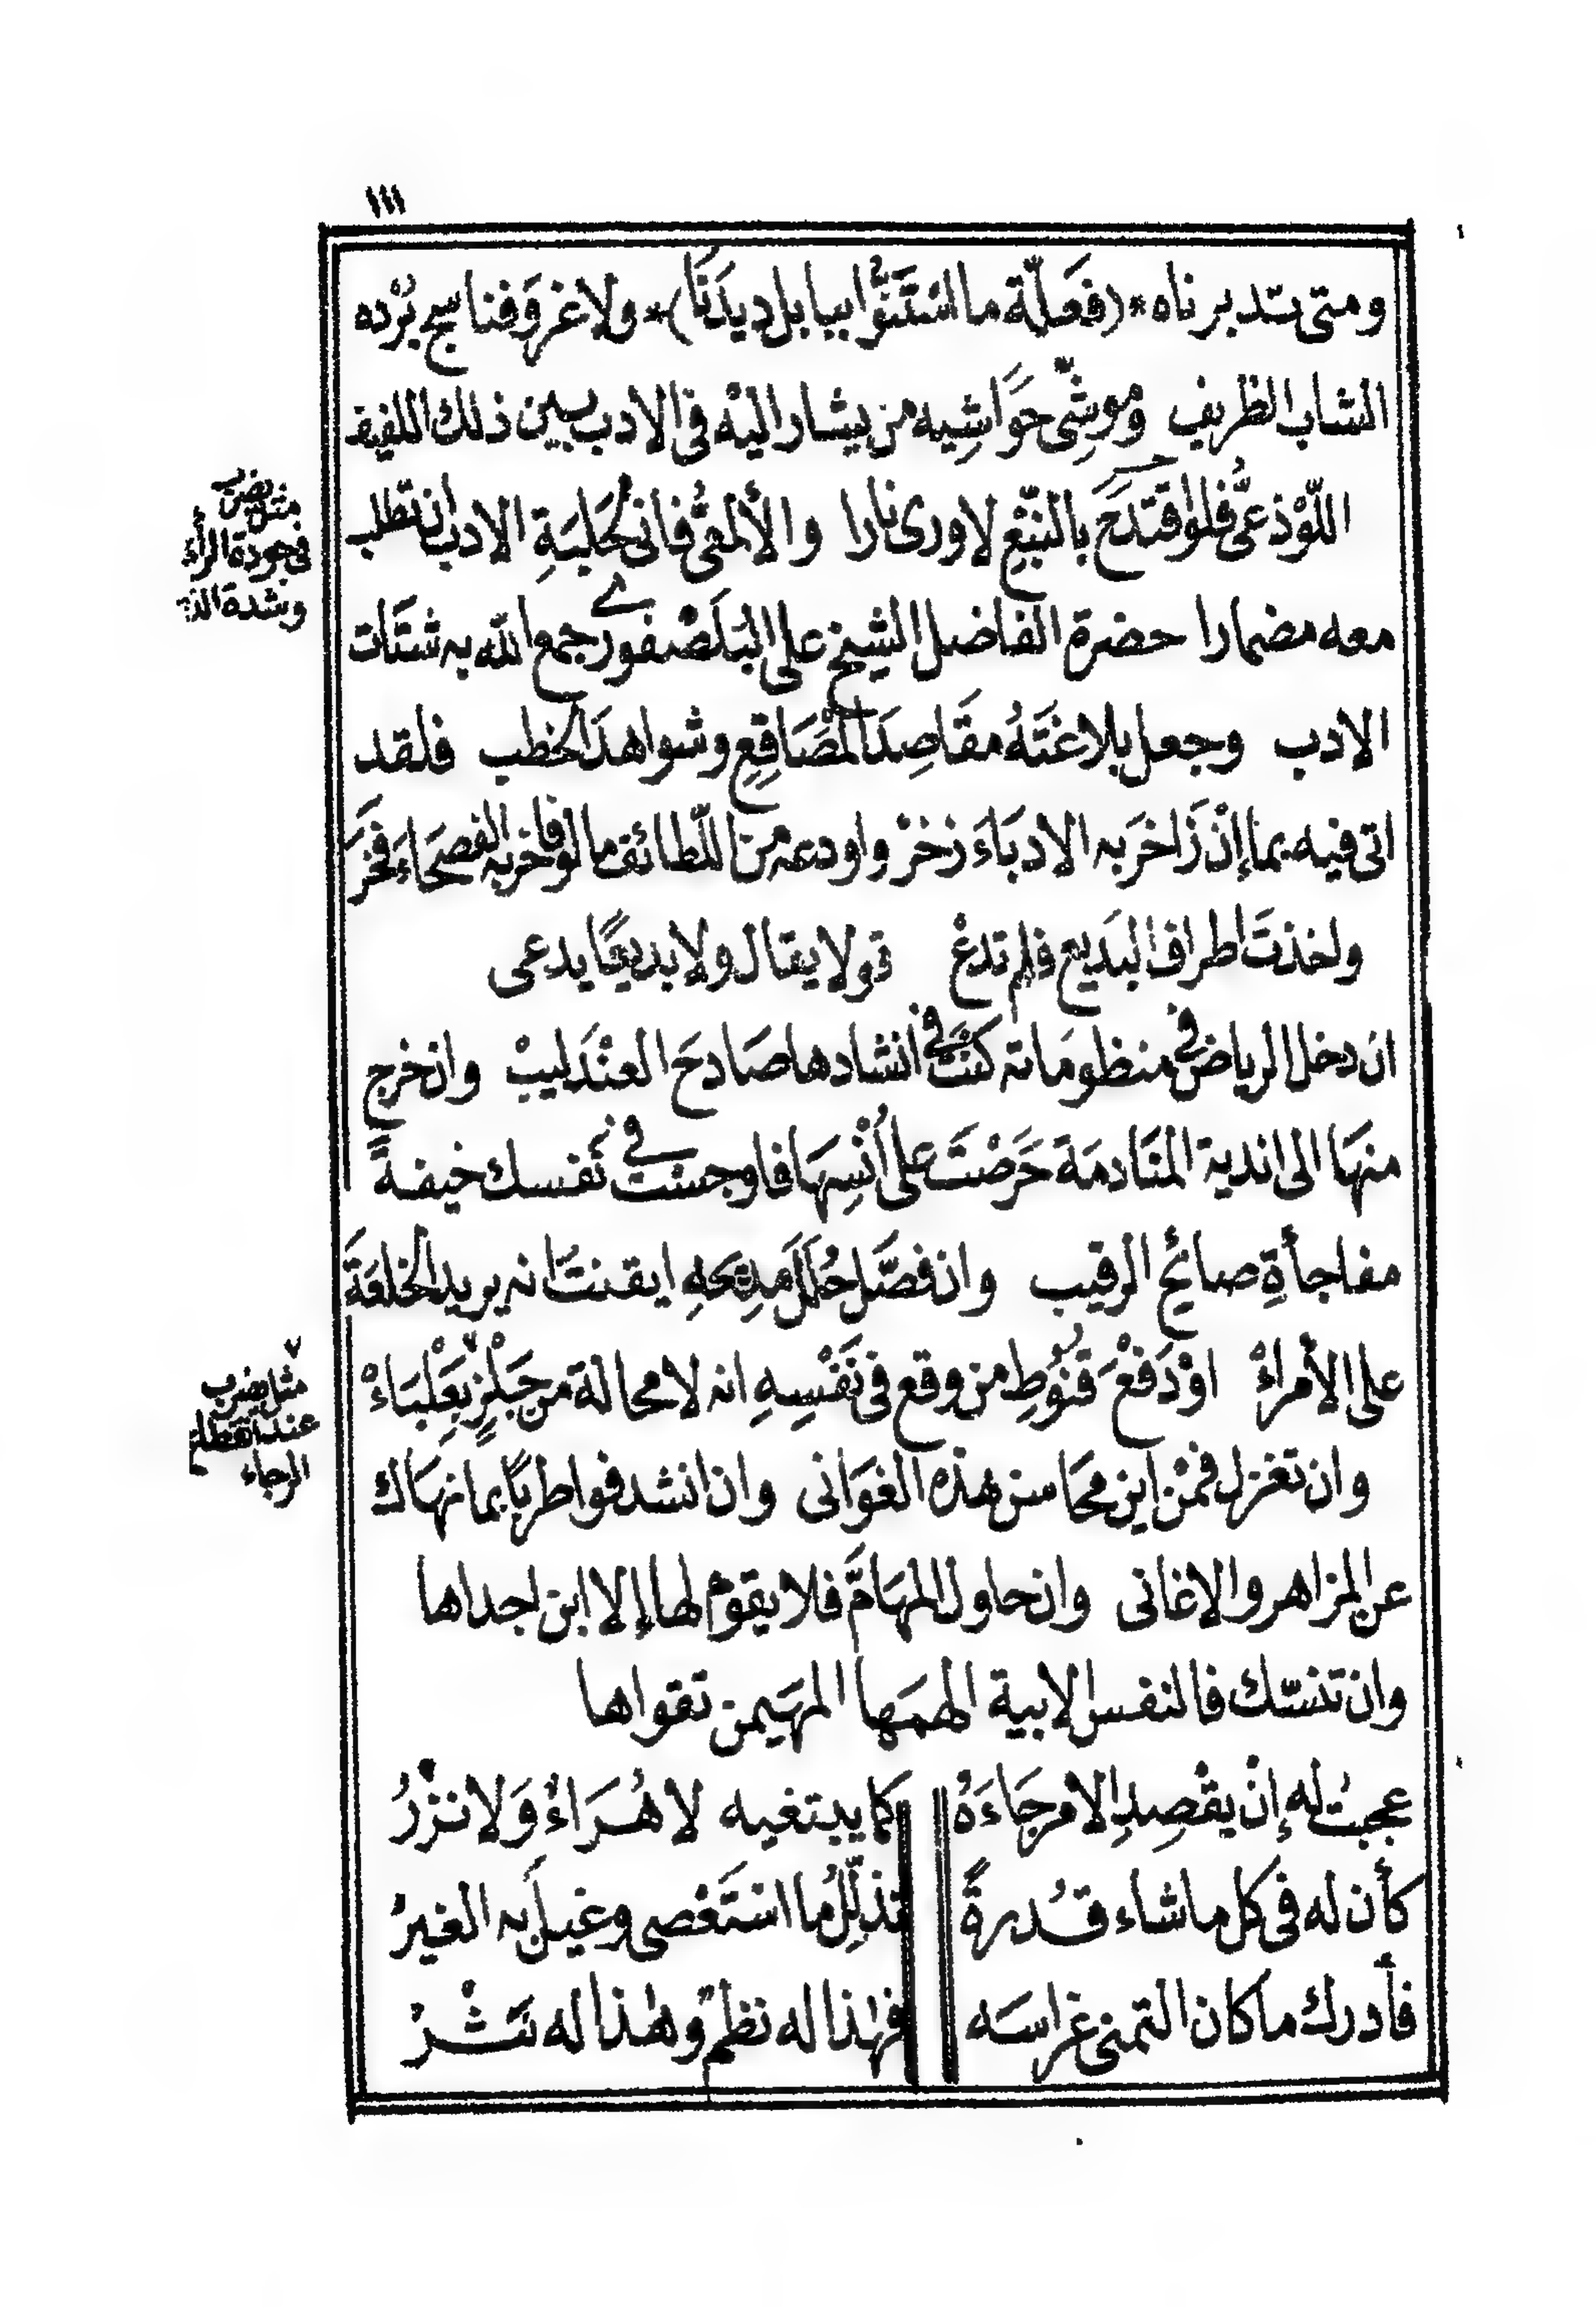 ١١١
ومتى تدبرناه * (فَعَلّة ما اسْتَنَوُّا ببابل ديدَنًا) * ولا غروَ فناسج بُرْده
الشاب الظريف وموشِّى حوَاشِيه من يشار اليْه فى الادب بين ذلك اللفيف
اللّوْذعىُّ فلو اقتدَحَ بالنَّبْعِ لاورى نارا والألمعىُّ فانى لحَلبَةِ الادب ان تطلب
معه مضمارا حضرة الفاضل الشيخ على البَلَصْفورى جمع الله به شتَات
الادب وجعل بلاغتَهُ مقَاصِدَ المصَاقِعِ وشواهدَ الخطب فلقد
اتى فيه بما إنْ زَاخرَ به الادبَاءَ زخرْ واودعه منَ اللّطائف ما لو فاخر به الفصحَاءَ فخرَ
واخذتَ اطراف البَديع فلم تدعْ قولا يقال ولا بديعًا يدعى
ان دخل الرياض فى منظومَاته كنتَ فى انشادها صَادحَ العنْدَليبْ وان خرج
منهَا الى اندية المنَادمَة حَرَصْتَ على أُنْسِهَا فاوجستَ فى نفسك خيفةً
مفاجأةِ صائحِ الرقيب وان فصَّل حُلَلَ مَدِيحَهِ ايقنتَ انه يريد الخلعَةَ
على الأمراءْ اوْ دَفْعَ قنوُطِ من وقع فى نَفْسِهِ انه لا محالة من جَبْلزٍ بعِلْبَاءْ
وان تغزل فمنْ اين محَاسن هذه الغوَانى وان انشد فواطربًا بما نهَاك
عن المزاهر والاغانى وان حاول المهَامَّ فلا يقومُ لها إلا ابن اجداها
وان تنسّك فالنفس الابية الهمَها المهَيمن تقواها
عجبتُ له إنْ يقْصِدِ الامرجَاءَهُ كما يبتغيه لا هُرَاءٌ وَلا نزْرُ
كأن له فى كل ما شاء قُدرةً تذلِّلُ ما استَعْصى وغيلَ به الغيرْ
فأدرك ما كان التمنى غراسَه فهٰذا له نظمٌ وهٰذا له نَثْرُ
مثل يضرب
فى جودة الرأى
وشدة
مثل يضرب
عند انقطاع
الرجاء